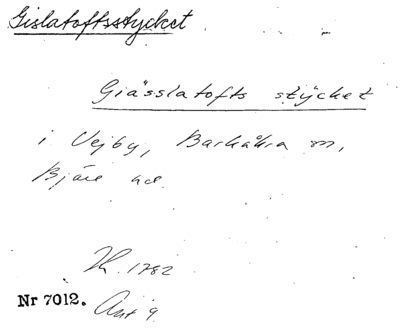 Gislatoftsstycket
Giässlatofts stycket
i Vejby, Barkåkra sn,
Bjäre hd.
Lk. 1782
Nr 7012. Akt 9